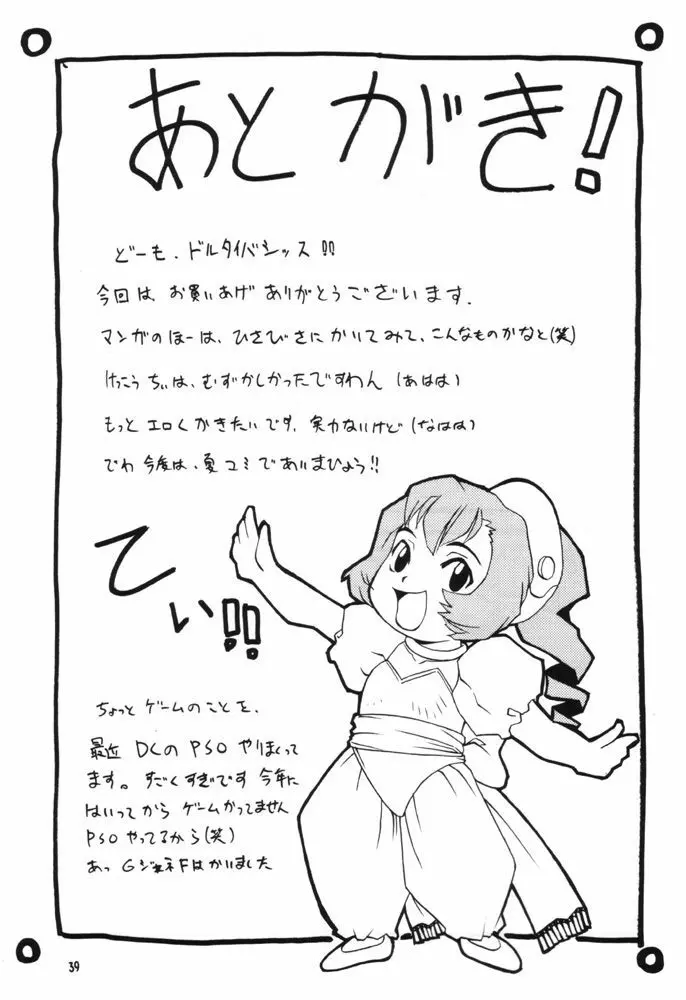 あとがき!
どーも、ドルタイバシッス!!
今回は、お買いあげありがとうございます.
マンガのほーは、ひさびさにかいてみて、こんなものかなと(笑)
けっこうちぃは、むずかしかったですわん (あはは)
もっとエロくかきたいです、実力ないけど(なはは)
でわ今度は、夏コミであいまひょう!!
てぃ!!
ちょっとゲームのことを、
最近 DCのPSOやりまくって
ます。すごくすぎです 今年に
はいってから ゲームかってません
PSOやってるから(笑)
あっ GジェネFはかいました
39